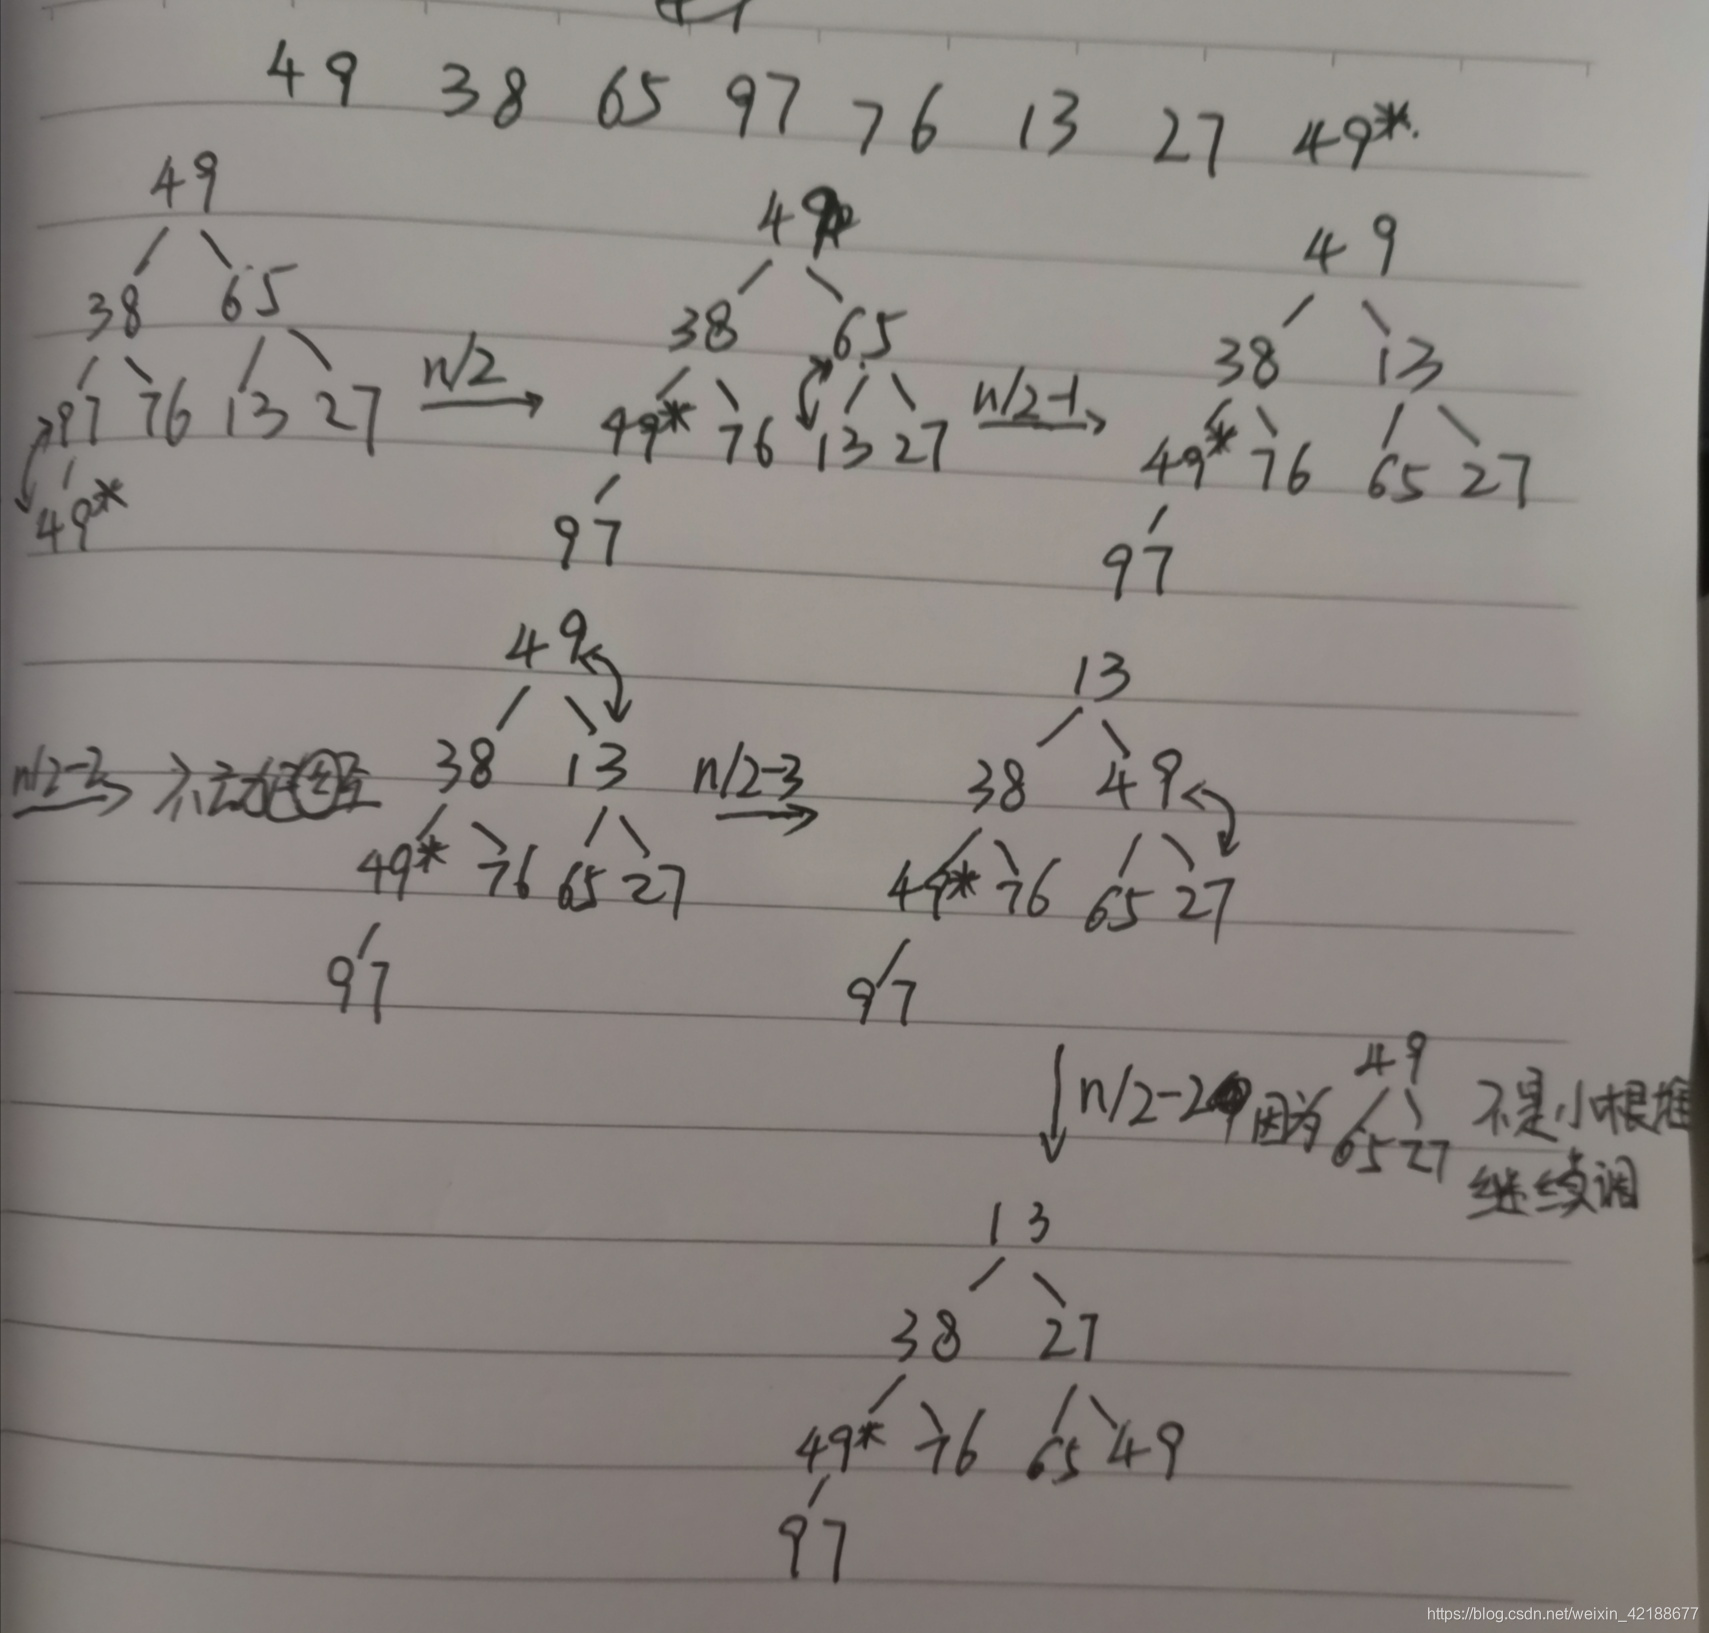 49 38 65 97 76 13 27 49*.
49
38 65
97 76 13 27
49*
n/2
49
38 65
49* 76 13 27
97
n/2-1
49
38 13
49* 76 65 27
97
n/2-2 不动
49
38 13
49* 76 65 27
97
n/2-3
13
38 49
49* 76 65 27
97
n/2-2 因为
49
65 27
不是小根堆
继续调
13
38 27
49* 76 65 49
97
https://blog.csdn.net/weixin_42188677